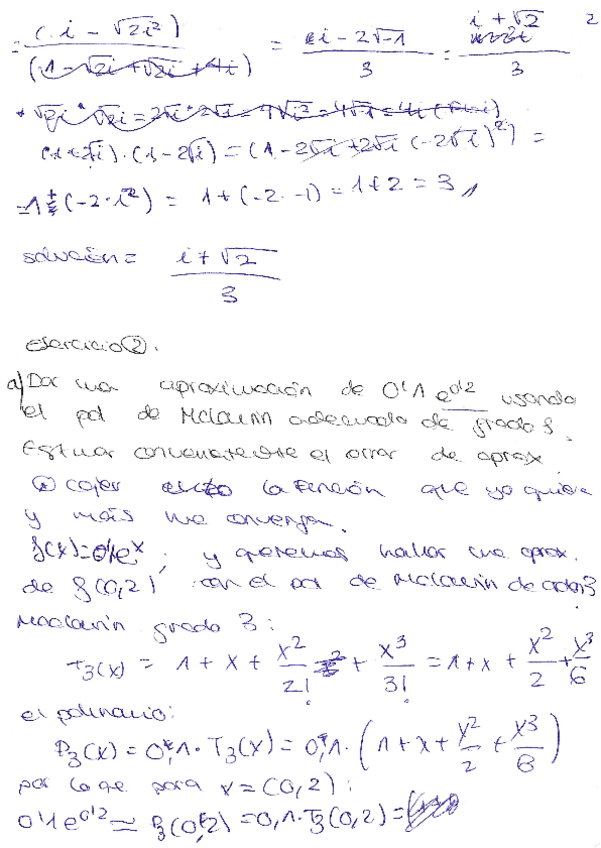 2
= (i - √2i²) / (1 - √2i + √2i + 4i) = i - 2√-1 / 3 = i + √2 / 3
* √2i · √2i = 2√i · 2√i = 4√i² = 4√-1 = 4i
(1+2√i) · (1-2√i) = (1 - 2√i + 2√i (-2√i)²) =
= 1 + (-2 · i²) = 1 + (-2 · -1) = 1 + 2 = 3
solución = i + √2 / 3
Ejercicio ②.
a) Dar una aproximación de 0'1 e^0'2 usando
el pol de Mclaurin adecuado de grado 3.
Estimar convenientemente el error de aprox
cojer la función que yo quiera
y más me convenga.
f(x) = 0'1e^x; y queremos hallar una aprox.
de f(0,2) con el pol de Maclaurin de orden 3
Maclaurin grado 3:
T₃(x) = 1 + x + x²/2! + x³/3! = 1 + x + x²/2 + x³/6
el polinomio:
P₃(x) = 0,1 · T₃(x) = 0,1 · (1 + x + x²/2 + x³/6)
por lo que para x = (0,2):
0'1e^0'2 ≃ f(0,2) = 0,1 · T₃(0,2) =